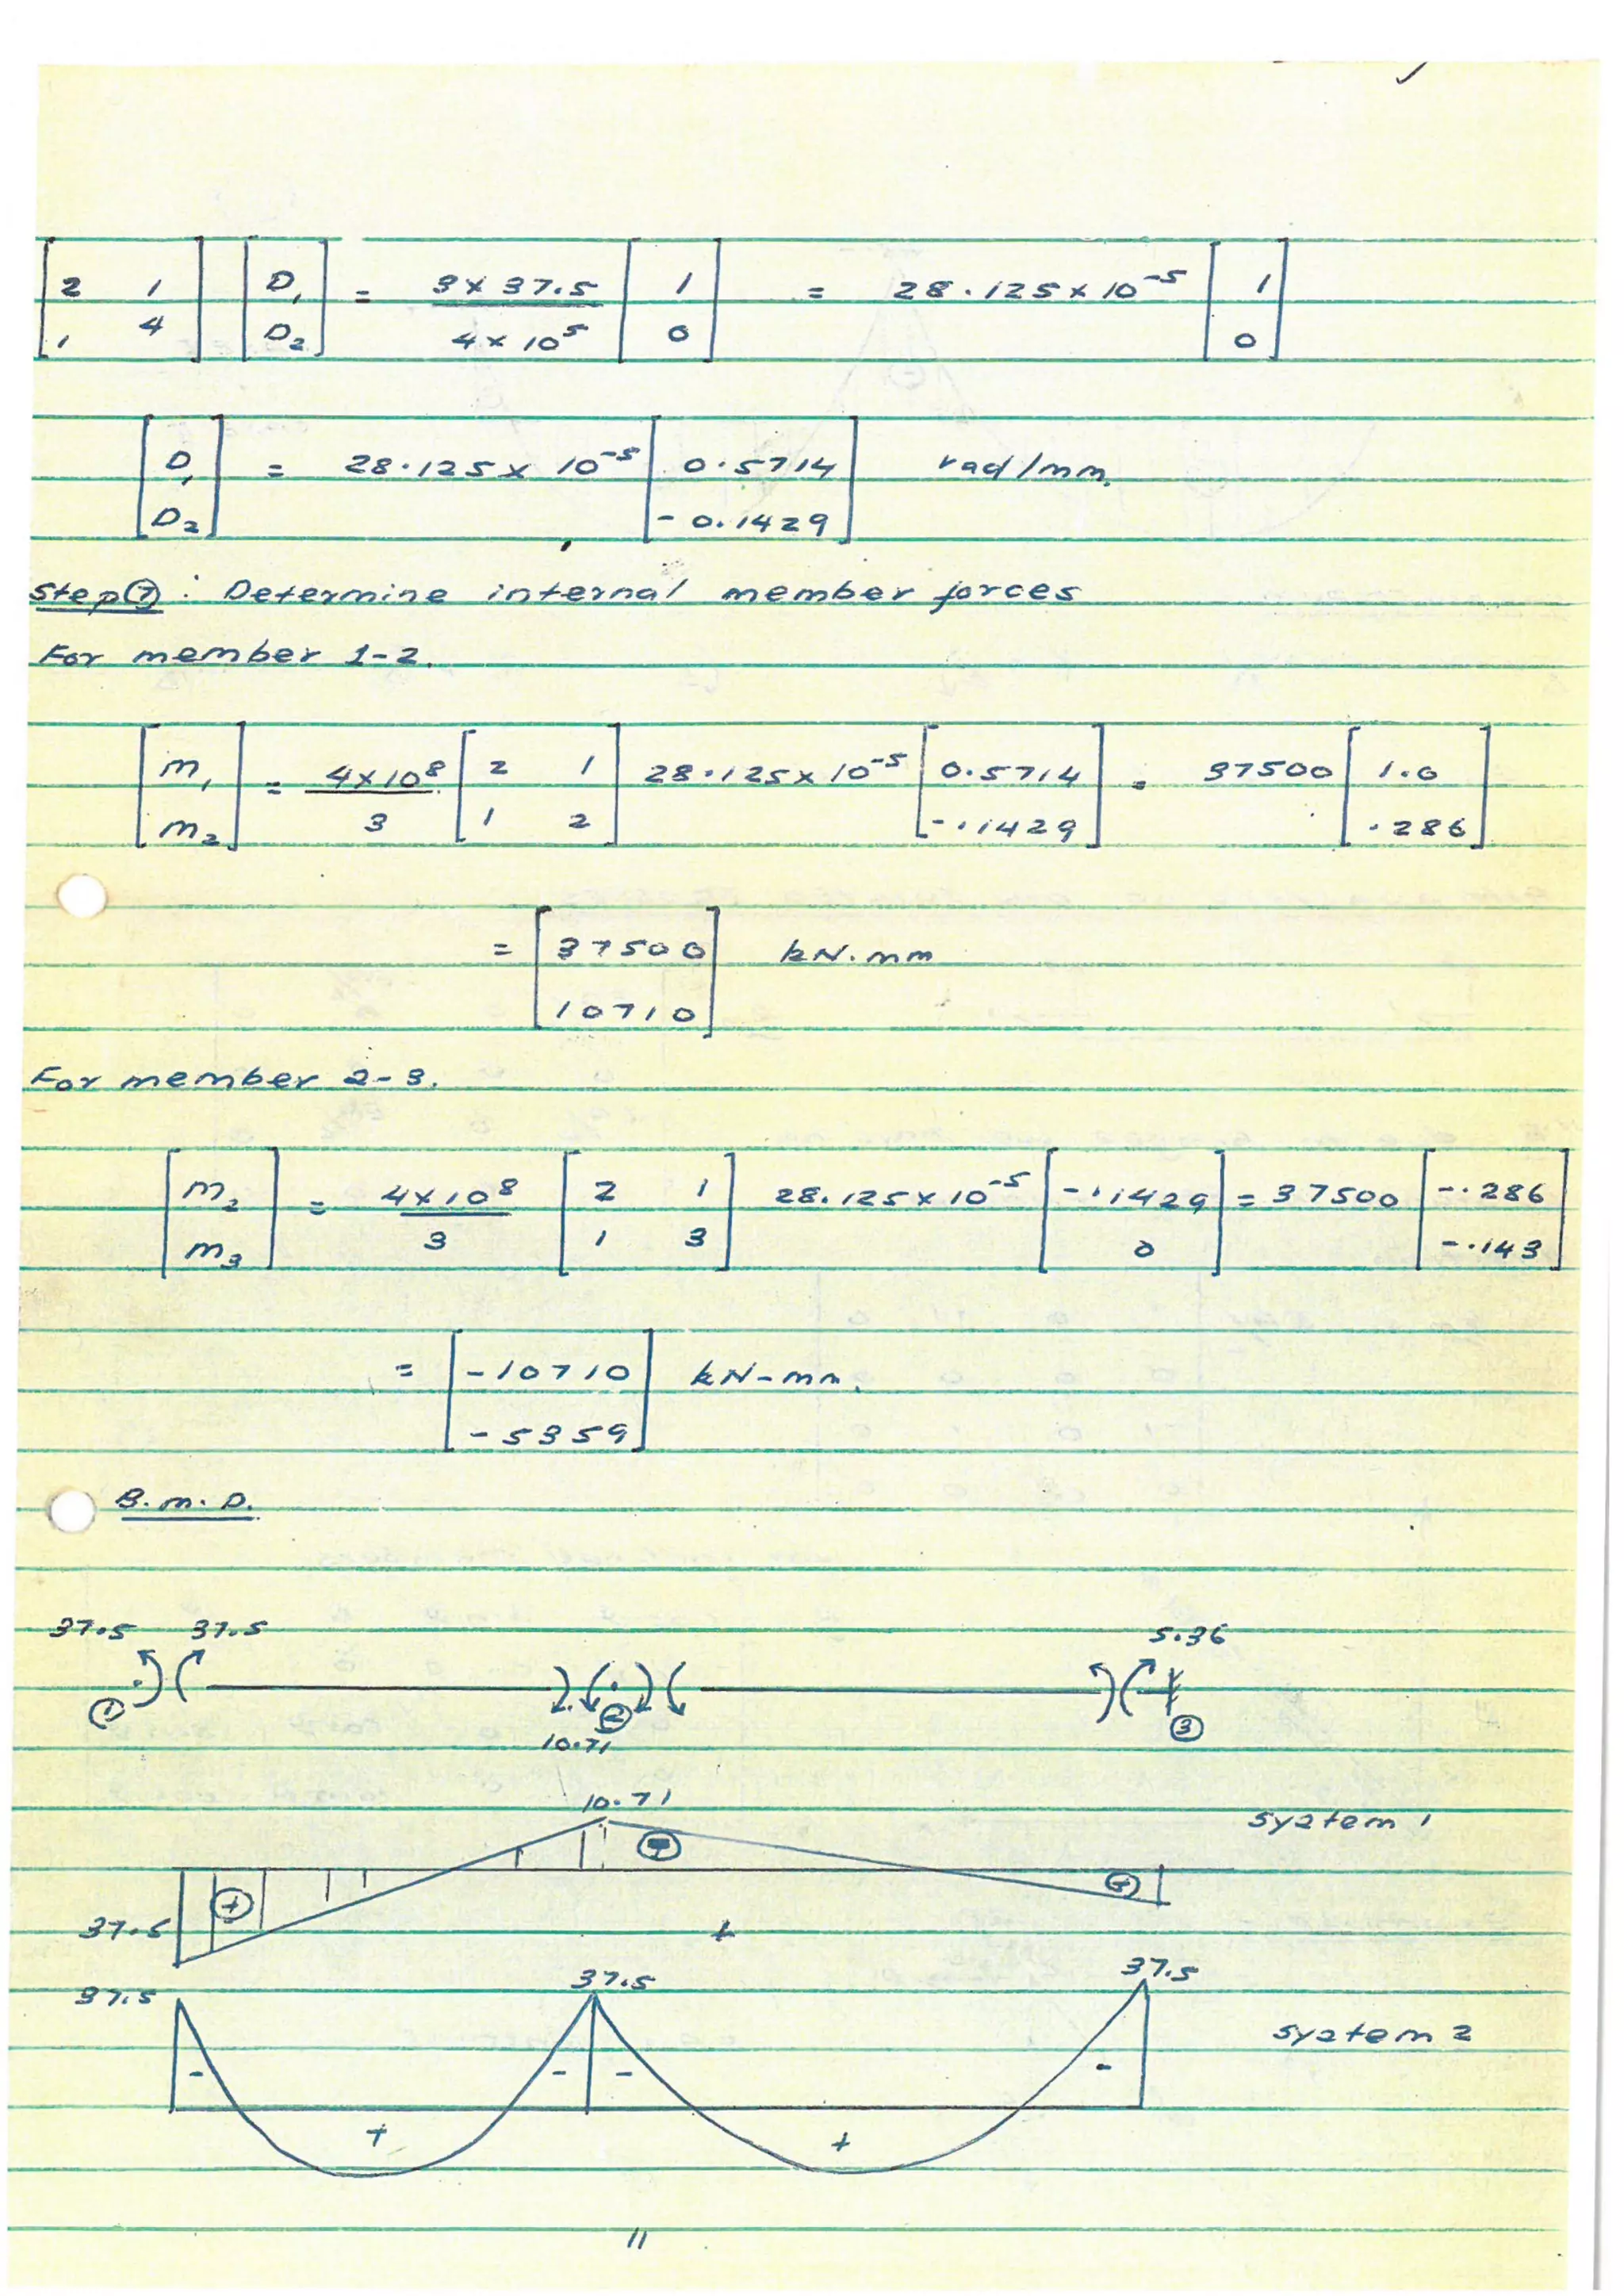 [2 1; 1 4] [D1; D2] = 3 x 37.5 / 4 x 10^5 [1; 0] = 28.125 x 10^-5 [1; 0]
[D1; D2] = 28.125 x 10^-5 [0.5714; -0.1429] rad/mm.
Step ⑦ : Determine internal member forces
For member 1-2.
[m1; m2] = 4x10^8 / 3 [2 1; 1 2] 28.125 x 10^-5 [0.5714; -.1429] = 37500 [1.0; .286]
= [37500; 10710] kN.mm
For member 2-3.
[m2; m3] = 4x10^8 / 3 [2 1; 1 3] 28.125 x 10^-5 [-.1429; 0] = 37500 [-.286; -.143]
= [-10710; -5359] kN-mm.
B.M.D.
37.5 37.5 5.36
① ② ③
10.71
10.71
system 1
+ - +
37.5
+
37.5 37.5 37.5
system 2
- - - -
+ +
11